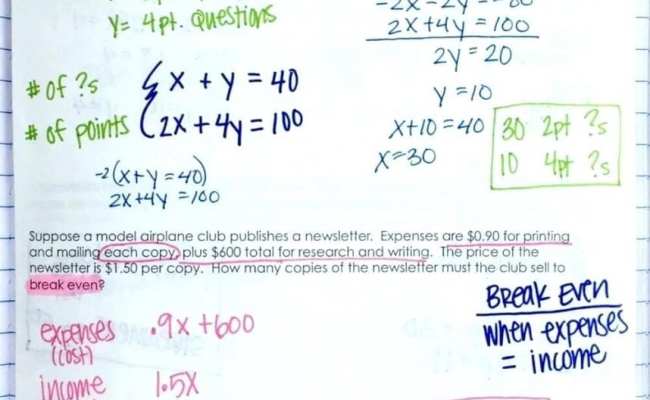 Y= 4pt. Questions
2x+4y = 100
2y = 20
y = 10
x+10 = 40
x=30
# of ?s x + y = 40
# of points 2x + 4y = 100
-2(x+y = 40)
2x+4y = 100
30 2pt ?s
10 4pt ?s
Suppose a model airplane club publishes a newsletter. Expenses are $0.90 for printing
and mailing each copy, plus $600 total for research and writing. The price of the
newsletter is $1.50 per copy. How many copies of the newsletter must the club sell to
break even?
Break Even
when expenses
= income
expenses .9x +600
(cost)
income 1.5x